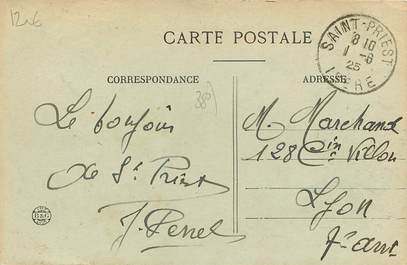 1206
CARTE POSTALE
SAINT-PRIEST
8 10
1 - 6
25
ISERE
CORRESPONDANCE
ADRESSE
Le bonjour
de St Priest
M. Marchand
128 Cin Villon
Lyon
B&G